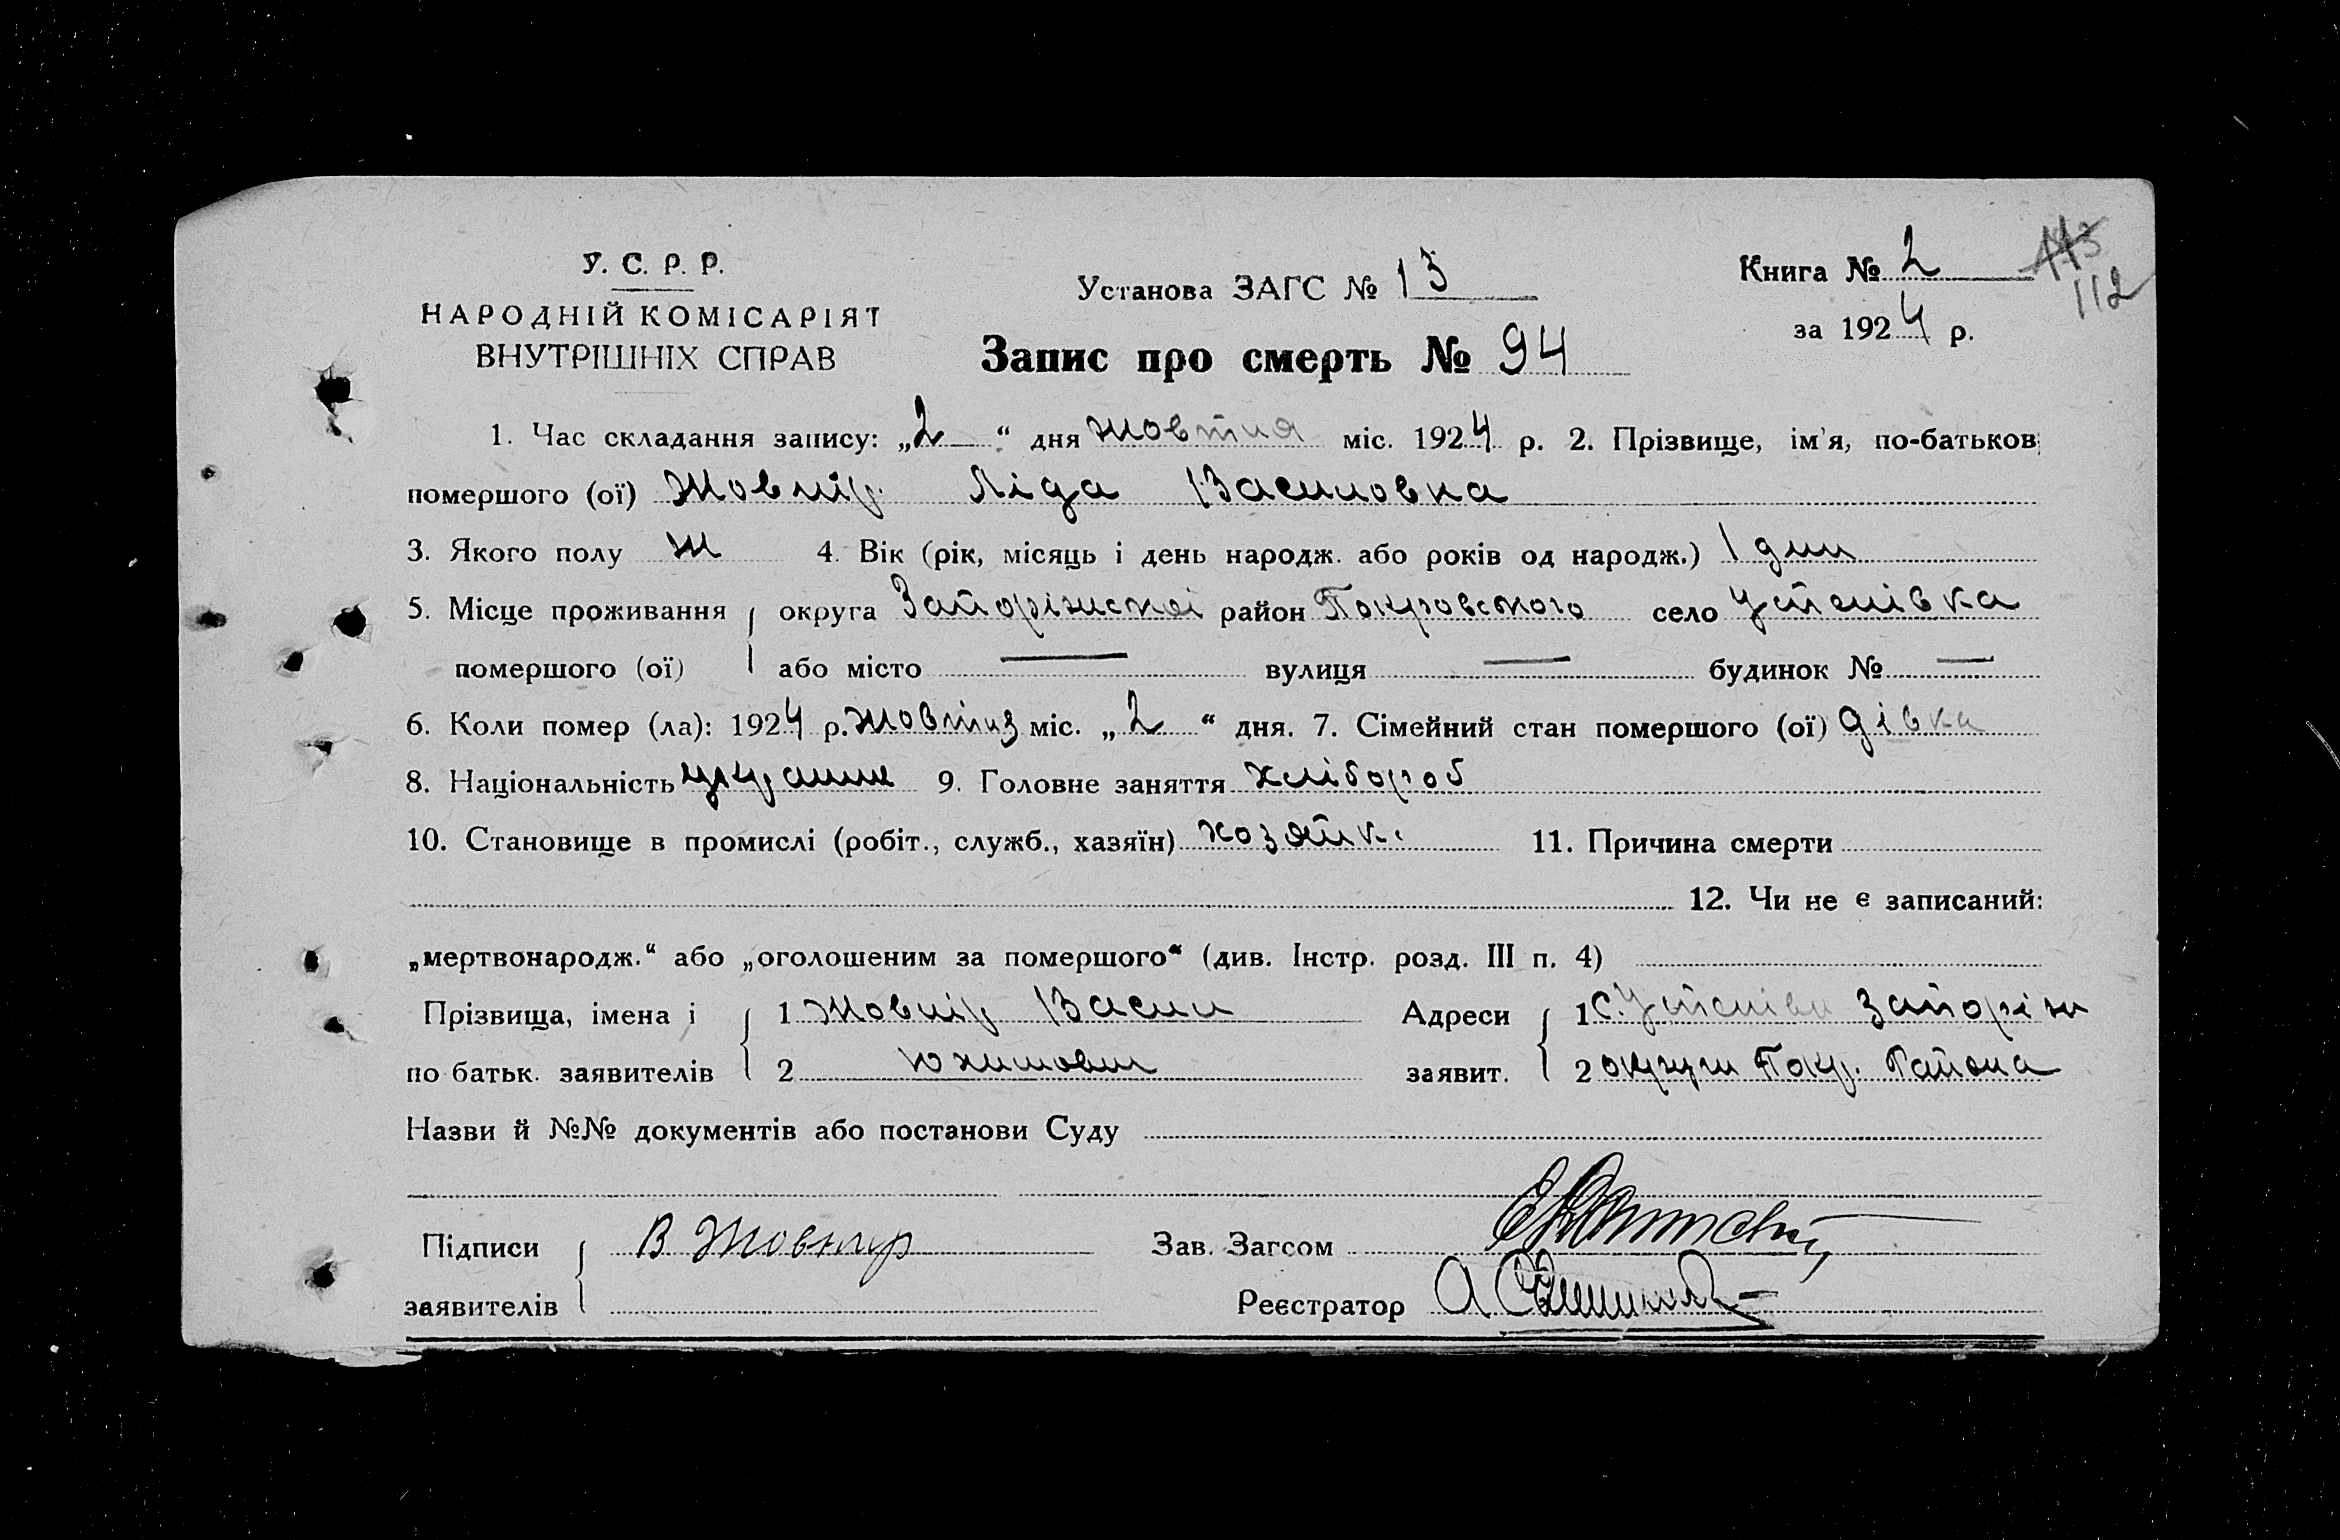 У. С. Р. Р.
НАРОДНІЙ КОМІСАРІЯТ
ВНУТРІШНІХ СПРАВ
Установа ЗАГС № 13
Запис про смерть № 94
Книга № 2
113
112
за 1924 р.
1. Час складання запису: „2“ дня жовтня міс. 1924 р. 2. Прізвище, ім'я, по-батьков
помершого (ої) Жовнір Ліда Василовна
3. Якого полу ж 4. Вік (рік, місяць і день народж. або років од народж.) 1 дни
5. Місце проживання округа Запоріжскоі район Покровского село Успенівка
помершого (ої) або місто — вулиця — будинок № —
6. Коли помер (ла): 1924 р. жовтня міс. „2“ дня. 7. Сімейний стан помершого (ої) дівка
8. Національність 9. Головне заняття хлібороб
10. Становище в промислі (робіт., служб., хазяїн) хозяйк. 11. Причина смерти
12. Чи не є записаний:
„мертвонародж.“ або „оголошеним за помершого“ (див. Інстр. розд. III п. 4)
Прізвища, імена і 1 Жовнір Васил Адреси 1 с. Успенівк Запоріж
по батьк. заявителів 2 Юхимович заявит. 2 округи Покр. Района
Назви й №№ документів або постанови Суду
Підписи В Жовнир Зав. Загсом
заявителів Реєстратор А